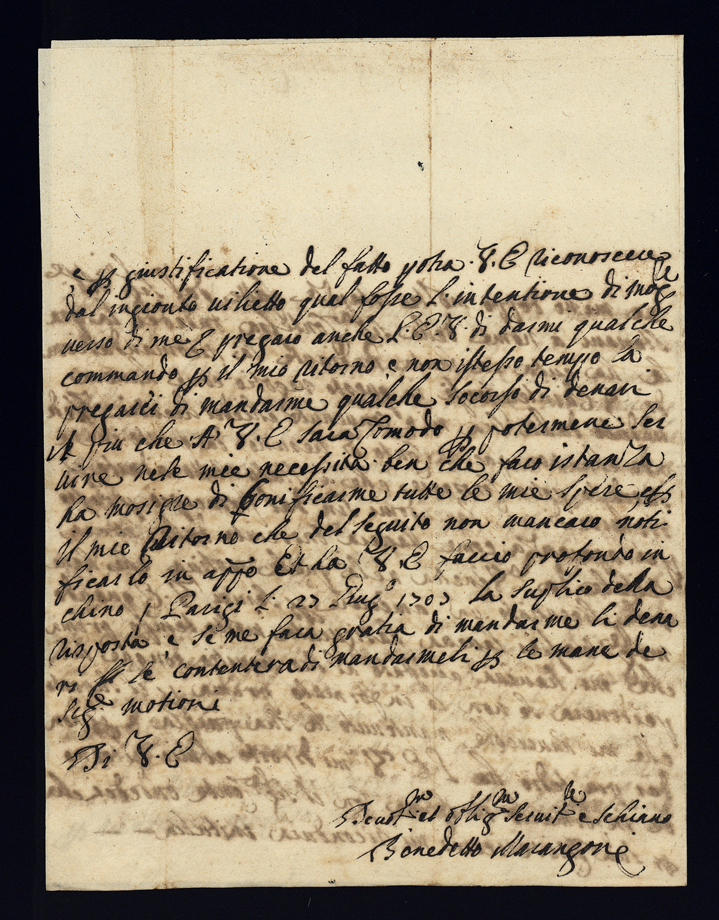 e p giustificatione del fatto potra V. E riconoscere
dal ingionto vilietto qual fosse l'intentione di mosgre
verso di me E pregaro anche L. E. V. di darmi qualche
commando p il mio ritorno e non istesso tempo la
pregarei di mandarme qualche socorso di denari
il piu che A V. E sara Comodo p potermene ser
vire nele mie necessita ben che faro istanza
ha mosigre di bonificarme tutte le mie spere
il mio Ritorno che del seguito non mancaro noti
ficarlo in appo Et ha V. E faccio profondo in
chino Parigi li 27 1707 la suplico della
risposta e se me fara gratia di mandarme li dena
ri se contentera di mandarmeli p le mane de
Sige motioni
Di V. E
Devotmo et obligmo servitre e schiavo
Benedetto Marangoni